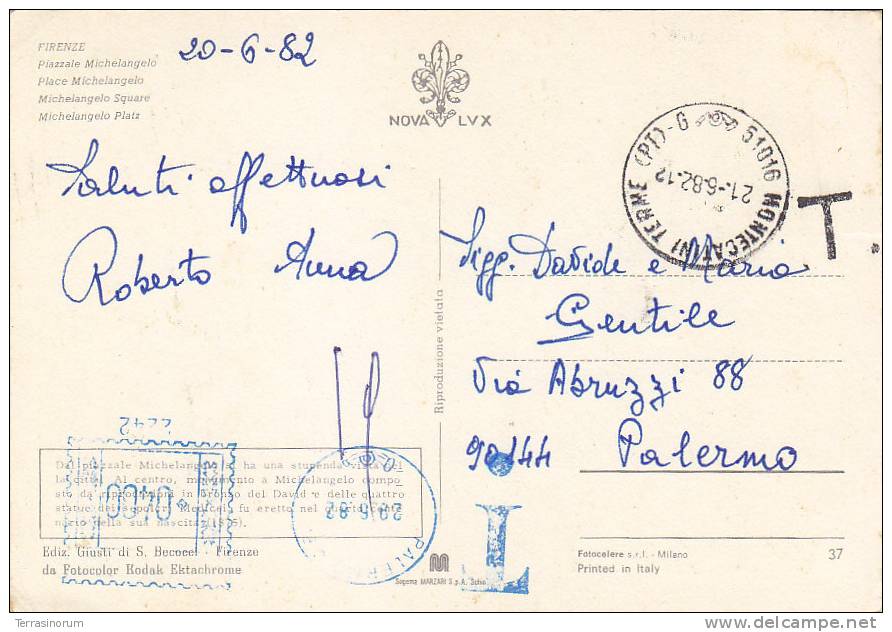 FIRENZE
Piazzale Michelangelo
Place Michelangelo
Michelangelo Square
Michelangelo Platz
20-6-82
NOVA LVX
51016 MONTECATINI TERME (PT)-G
21.-6.82.12
T
Saluti affettuosi
Roberto Anna
Sigg. Davide e Maria
Gentile
Via Abruzzi 88
90144 Palermo
Riproduzione vietata
Dal piazzale Michelangelo si ha una stupenda vista
città. Al centro, monumento a Michelangelo compo-
sto da riproduzioni in bronzo del David e delle quattro
statue dei sepolcri Medicei, fu eretto nel quarto cente-
nario della sua nascita (1875).
Ediz. Giusti di S. Becocci - Firenze
da Fotocolor Kodak Ektachrome
2242
0400
29.6.82
PALER
T
M
Sogema MARZARI S.p.A. Schio
Fotocelere s.r.l. - Milano
Printed in Italy
37
Terrasinorum
delcampe.net